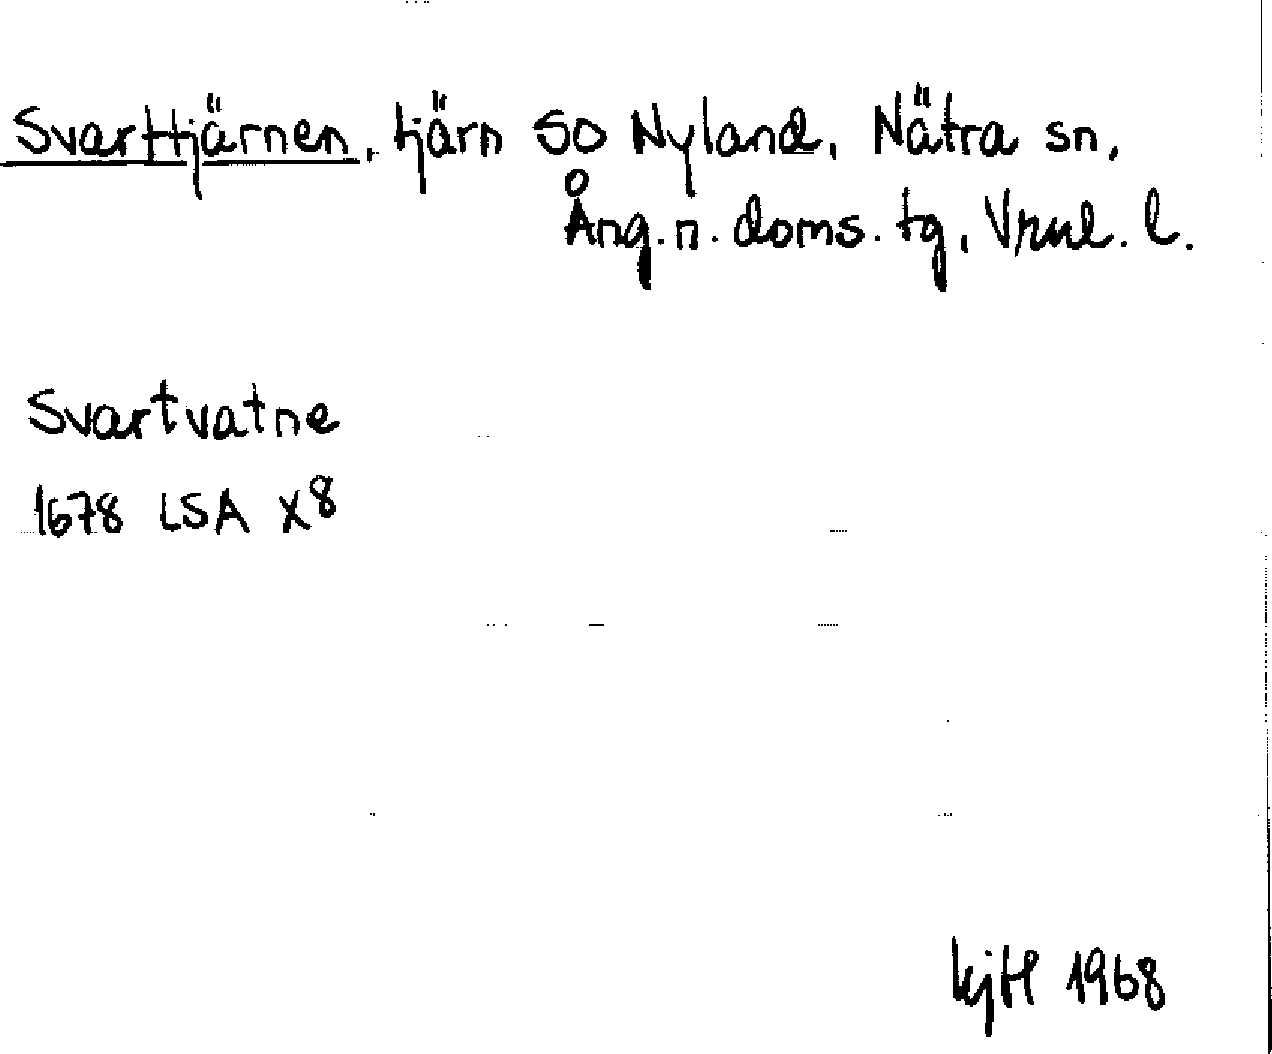 Svarttjärnen, tjärn SO Nyland, Nätra sn,
Ång. n. doms. tg, Vrnl. l.
Svartvatne
1678 LSA X8
kjH 1968